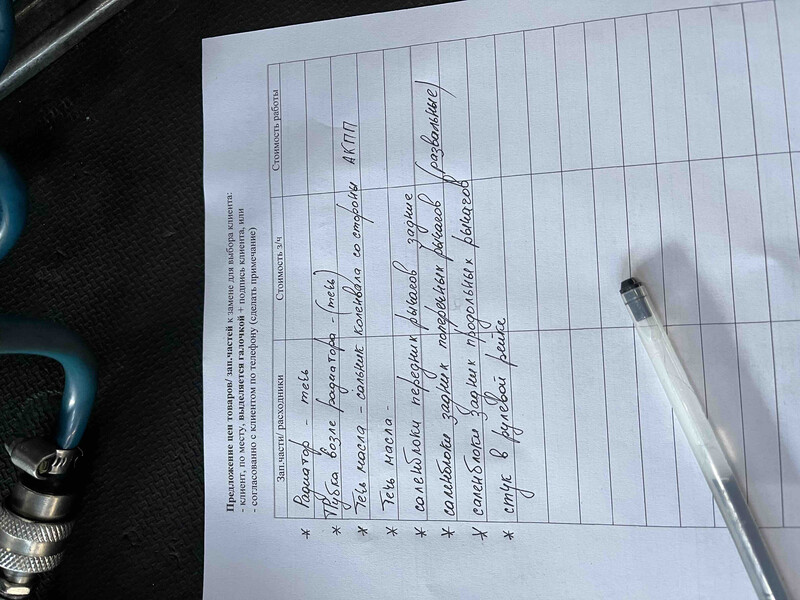 Предложение цен товаров/ зап.частей к замене для выбора клиента:
- клиент, по месту, выделяется галочкой + подпись клиента, или
- согласованно с клиентом по телефону (сделать примечание)
Зап.части/ расходники Стоимость з/ч Стоимость работы
* Радиатор - течь
Трубка возле радиатора - (течь)
* Течь масла - сальник коленвала со стороны АКПП
* Течь масла -
* саленблоки передних рычагов задние
* саленблоки задних поперечных рычагов (развальные)
* саленблоки задних продольных рычагов
* стук в рулевой рейке